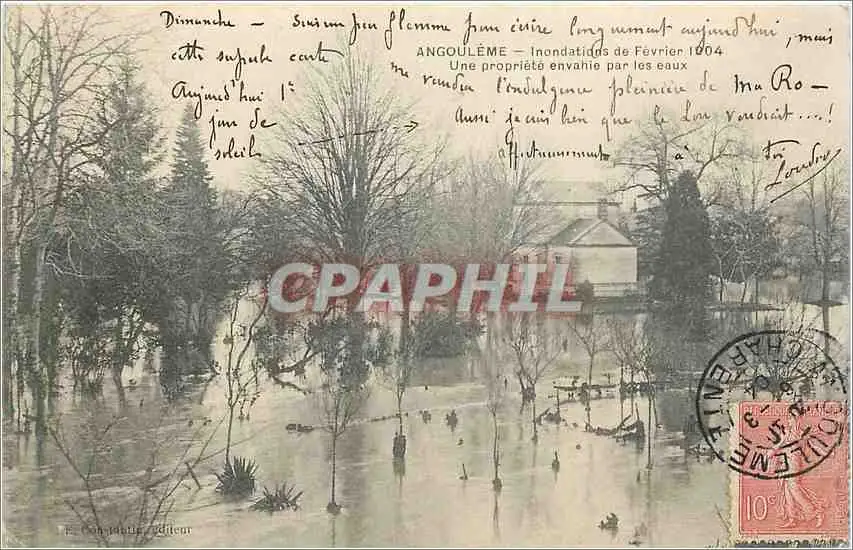 Dimanche – suis un peu flemme pour écrire longuement aujourd'hui, mais
cette superbe carte
me vaudra l'indulgence pleinière de Ma Ro –
Aujourd'hui 1er
jour de
soleil
Aussi je suis bien que le Lou voudrait ....!
affectueusement à toi
ANGOULÊME – Inondations de Février 1904
Une propriété envahie par les eaux
CPAPHIL
CHARENTE
10c
E. Constantin, Editeur